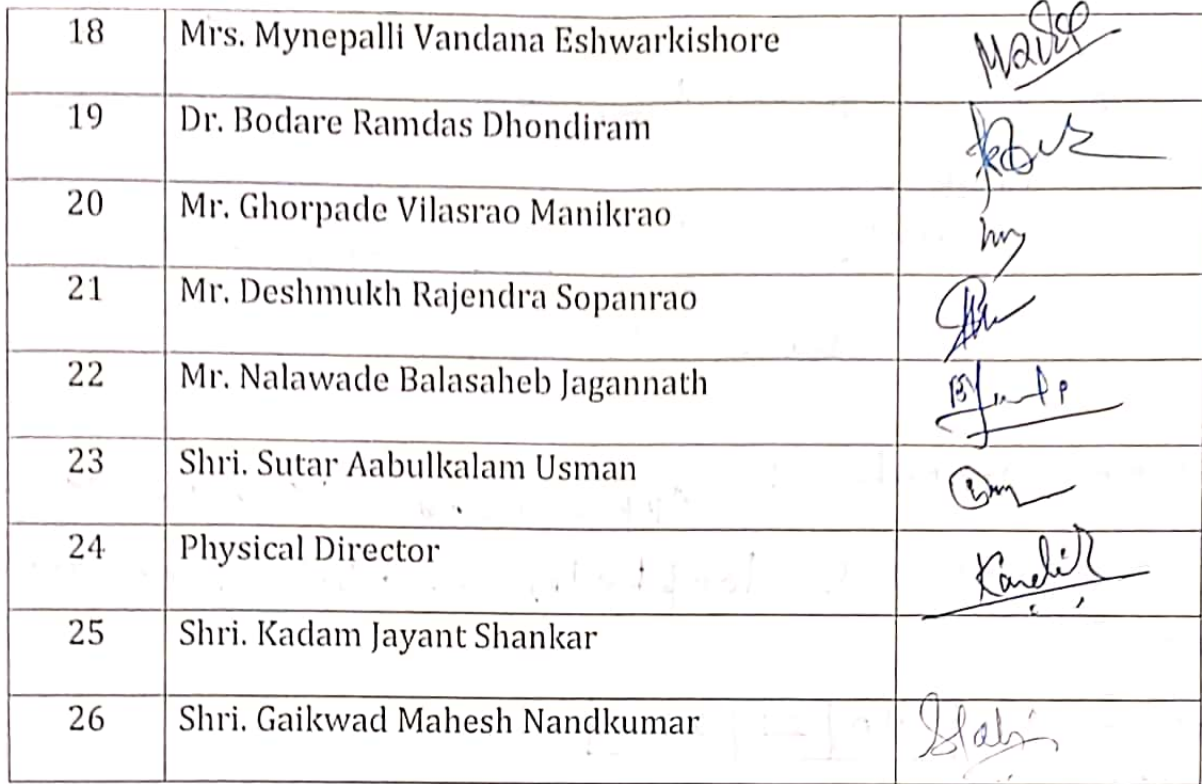 18 Mrs. Mynepalli Vandana Eshwarkishore
19 Dr. Bodare Ramdas Dhondiram
20 Mr. Ghorpade Vilasrao Manikrao
21 Mr. Deshmukh Rajendra Sopanrao
22 Mr. Nalawade Balasaheb Jagannath
23 Shri. Sutar Aabulkalam Usman
24 Physical Director
25 Shri. Kadam Jayant Shankar
26 Shri. Gaikwad Mahesh Nandkumar